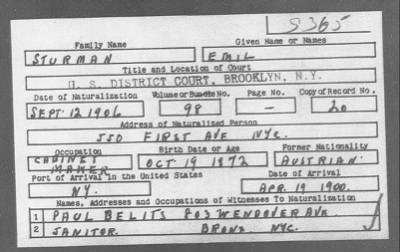 S365
Family Name Given Name or Names
STURMAN EMIL
Title and Location of Court
U. S. DISTRICT COURT, BROOKLYN, N.Y.
Date of Naturalization Volume or Bundle No. Page No. Copy of Record No.
SEPT. 12 1906 98 — 20
Address of Naturalized Person
550 FIRST AVE NYC.
Occupation Birth Date or Age Former Nationality
CABINET MAKER OCT 19 1872 AUSTRIAN
Port of Arrival in the United States Date of Arrival
N.Y. APR. 19 1900.
Names, Addresses and Occupations of Witnesses To Naturalization
1 PAUL BELITS 803 WENDOVER AVE
2 JANITOR. BRONX NYC.